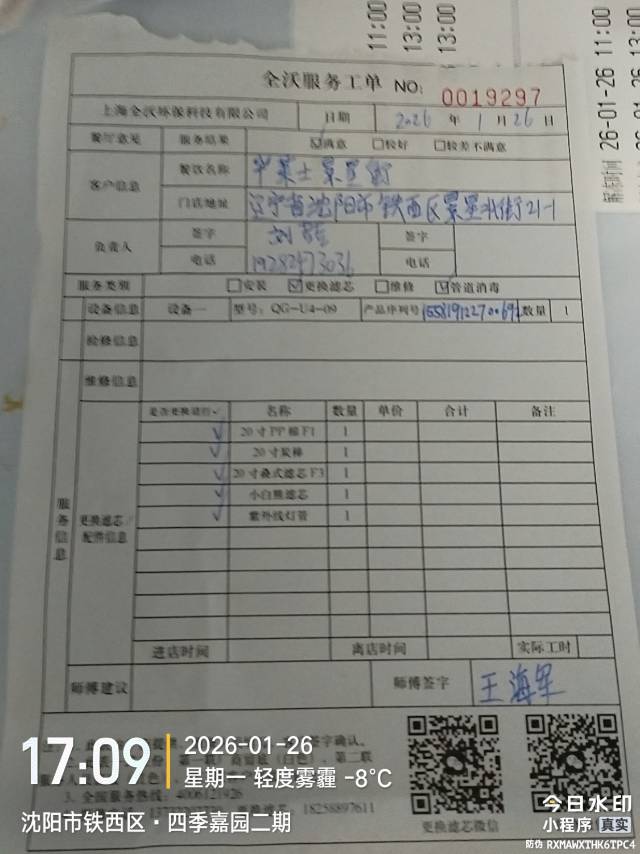 11:00
13:00
13:00
26-01-26 11:00
解冻时间
全沃服务工单 NO: 0019297
上海全沃环保科技有限公司 日期 2026 年 1 月 26 日
餐厅意见 服务结果 ☑满意 □较好 □较差不满意
客户信息 餐饮名称 华莱士景星街
门店地址 辽宁省沈阳市铁西区景星北街21-1
负责人 签字 签字
电话 19282473036 电话
服务类别 □安装 ☑更换滤芯 □维修 ☑管道消毒
设备信息 设备一 型号: QG-U4-09 产品序列号 数量 1
检修信息
维修信息
服务信息
更换滤芯/配件信息
是否更换请打✓ 名称 数量 单价 合计 备注
✓ 20寸PP棉F1 1
✓ 20寸炭棒 1
✓ 20寸叠式滤芯F3 1
✓ 小白熊滤芯 1
✓ 紫外线灯管 1
进店时间 离店时间 实际工时
师傅建议 师傅签字 王海军
签字确认。
第二联
3、全国服务热线: 4006121926
18258897611
更换滤芯微信
17:09
2026-01-26
星期一 轻度雾霾 -8℃
沈阳市铁西区·四季嘉园二期
今日水印
小程序 真实
防伪 RXMAWXTHK6TPC4